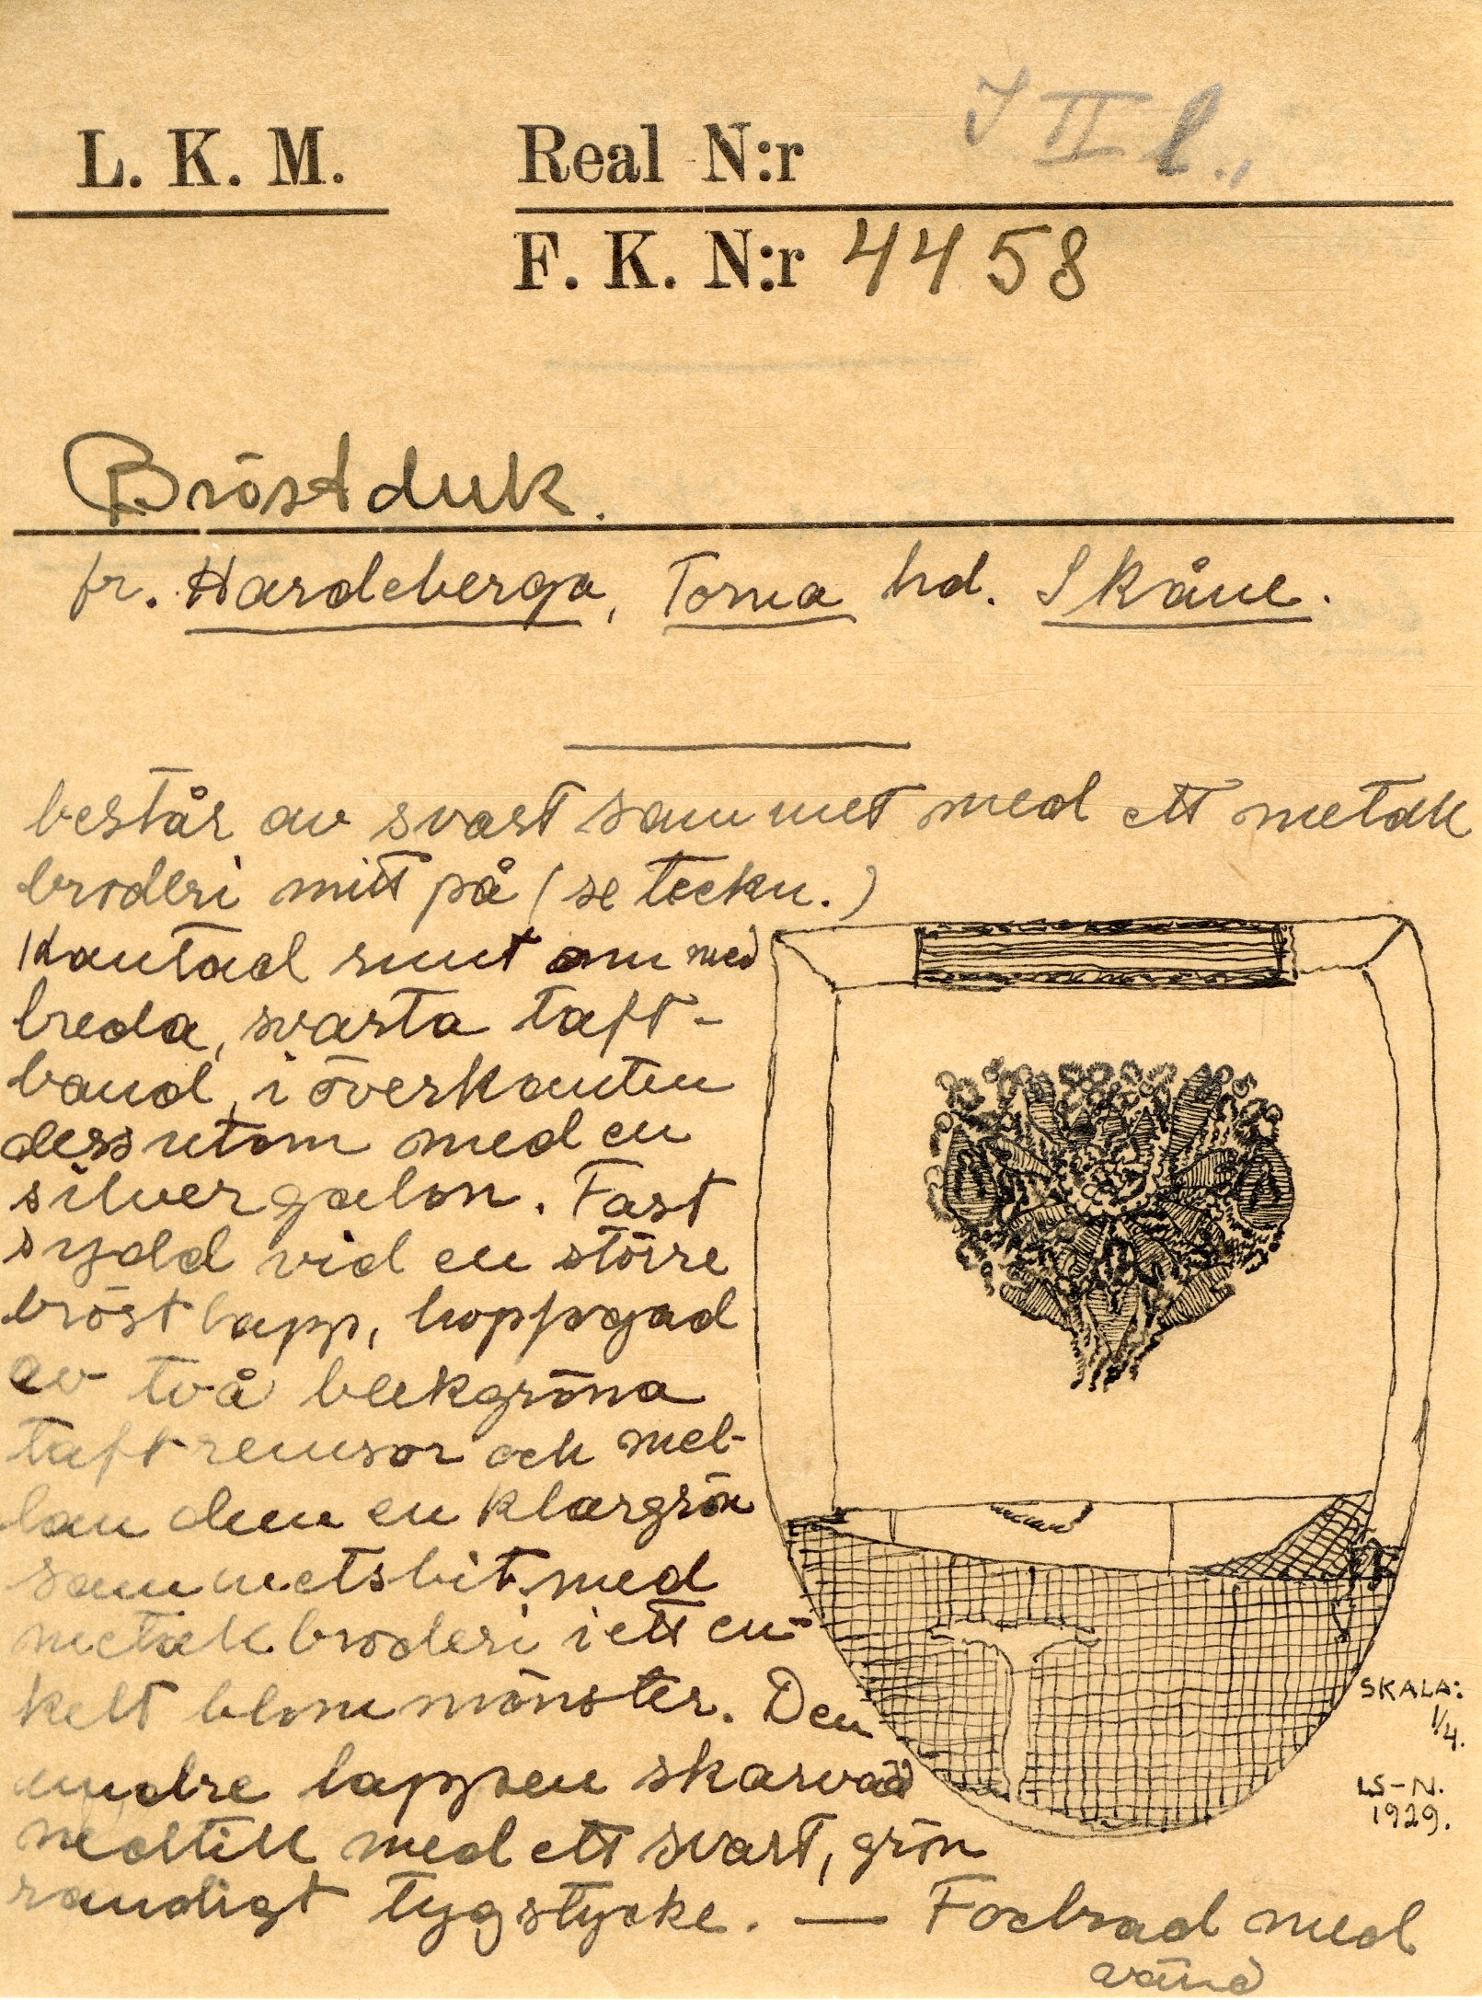 L. K. M.
Real N:r I II l.,
F. K. N:r 4458
Bröstduk.
fr. Hardeberga, Torna hd. Skåne.
består av svart sammet med ett metall
broderi mitt på (se teckn.)
Kantad runt om med
breda, svarta taft-
band, i överkanten
dessutom med en
silvergalon. Fast
sydd vid en större
bröstlapp, hoppgad
av två blekgröna
taftremsor och mel-
lan dem en klargrön
sammetsbit med
metallbroderi i ett en-
kelt blommönster. Den
undre lappen skarvad
nedtill med ett svart, grön
randigt tygstycke. — Fodrad med
vänd
SKALA:
1/4.
LS-N.
1929.